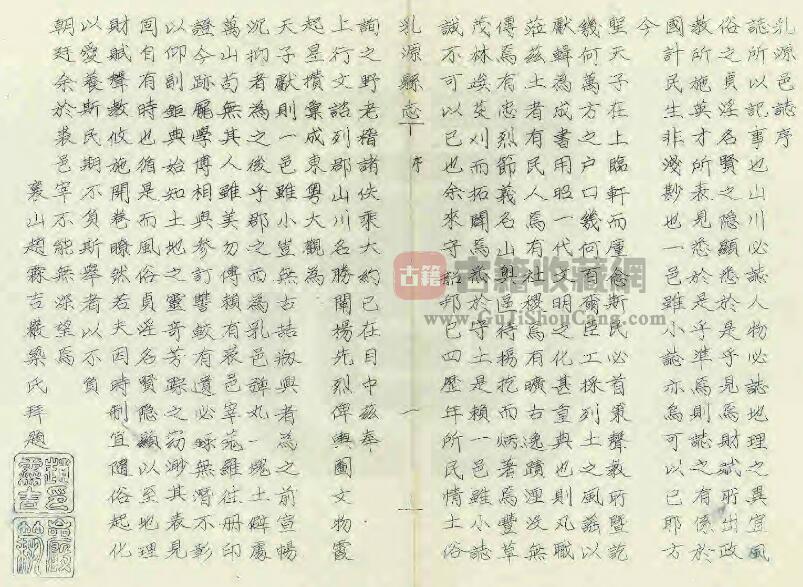 乳源邑誌序
誌所以記事也山川必誌人物必誌地理之異宣風
俗之貞淫名賢之隐顯悉於是乎見焉財賦所出政
教所施英才所表見悉於是乎準焉則誌之有係於
國計民生非淺尠也一邑雖小誌亦烏可以已耶方
今
聖天子在上臨軒而廑念斯民必首東聲教所暨訖
幾何萬方之户口幾何百爾臣工採列土之風謡以
獻輯為成書用昭一代文明之化甚皇典也則凡職
莅兹土者有民人焉有社稷焉有曠古逸蹟湮没無
傳焉有忠烈節義名山奥區待揚扢而炳著焉豐草
茂林埃芟刈而拓闢焉於守土是賴一邑雖小誌
誠不可以已也余來守韶邦已四歷年所民情土俗
乳源縣志
序
一
詢之野老稽諸佚乘大約已在目中兹奉
上行文諮列郡山川名勝開揚先烈俾輿圖文物霞
起星攢彙成東粤大觀為
天子獻則一邑雖小豈無古誌嫐興者為之前宣暢
沉抑者為之後乎郡之西為乳邑諀丸一塊土僻處
萬山苟無其人雖美勿傳賴有裘邑宰蒞雖往册印
證今跡龎學博相與參訂讐較有遺必録無潜不彰
以仰副鉅典始知土地之靈奇芳踪之窈渺其表見
固自有時也循是而風俗貞淫名賢隐顯以至地理
財賦聲教攸施開巻瞭然若夫因時制宜隨俗起化
以愛養斯民期不負斯舉者以不負
朝廷余於裘邑宰不能無深望焉
襄山趙霖吉巖築氏拜題
古籍
古籍收藏网
www.GuJiShouCang.com